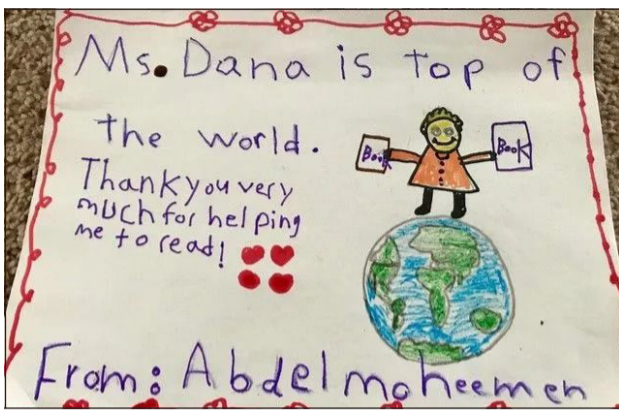 Ms. Dana is top of
the world.
Thank you very
much for helping
me to read!
Book
Book
From: Abdelmoheemen